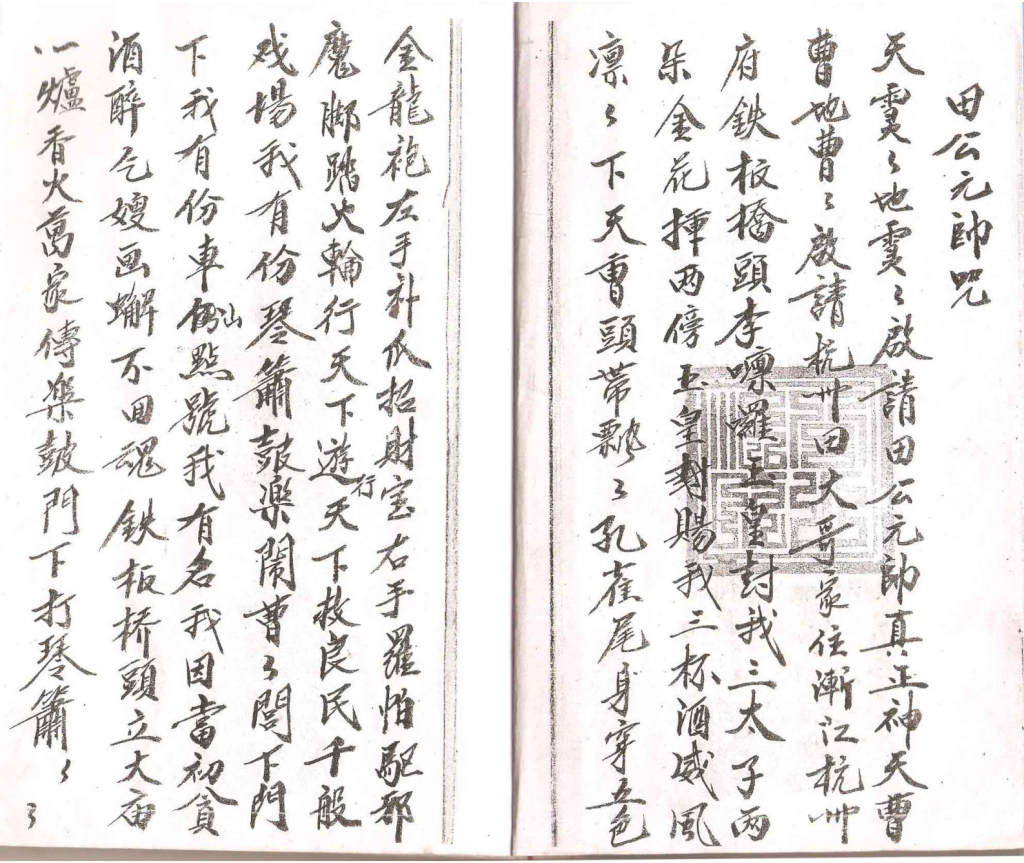 田公元帥咒
天靈〻地靈〻啟請田公元帥真正神天曹
曹地曹〻啟請杭卅田大哥家住漸江杭卅
府鉄板橋頭李嘌囉玉皇封我三太子兩
朵金花揷兩傍玉皇勅賜我三杯酒威風
凛〻下天曹頭帶飄〻孔雀尾身穿五色
金龍袍左手补瓜招財宝右手羅怕駈邪
魔腳踏火輪行天下遊行天下救良民千般
戏場我有份琴簫鼓楽鬧曹〻閭下門
下我有份車仙點號我有名我因當初貪
酒醉乞嫂画蠏不回魂鉄板桥頭立大庙
一爐香火萬家傳楽皷門下打琴簫〻
〻